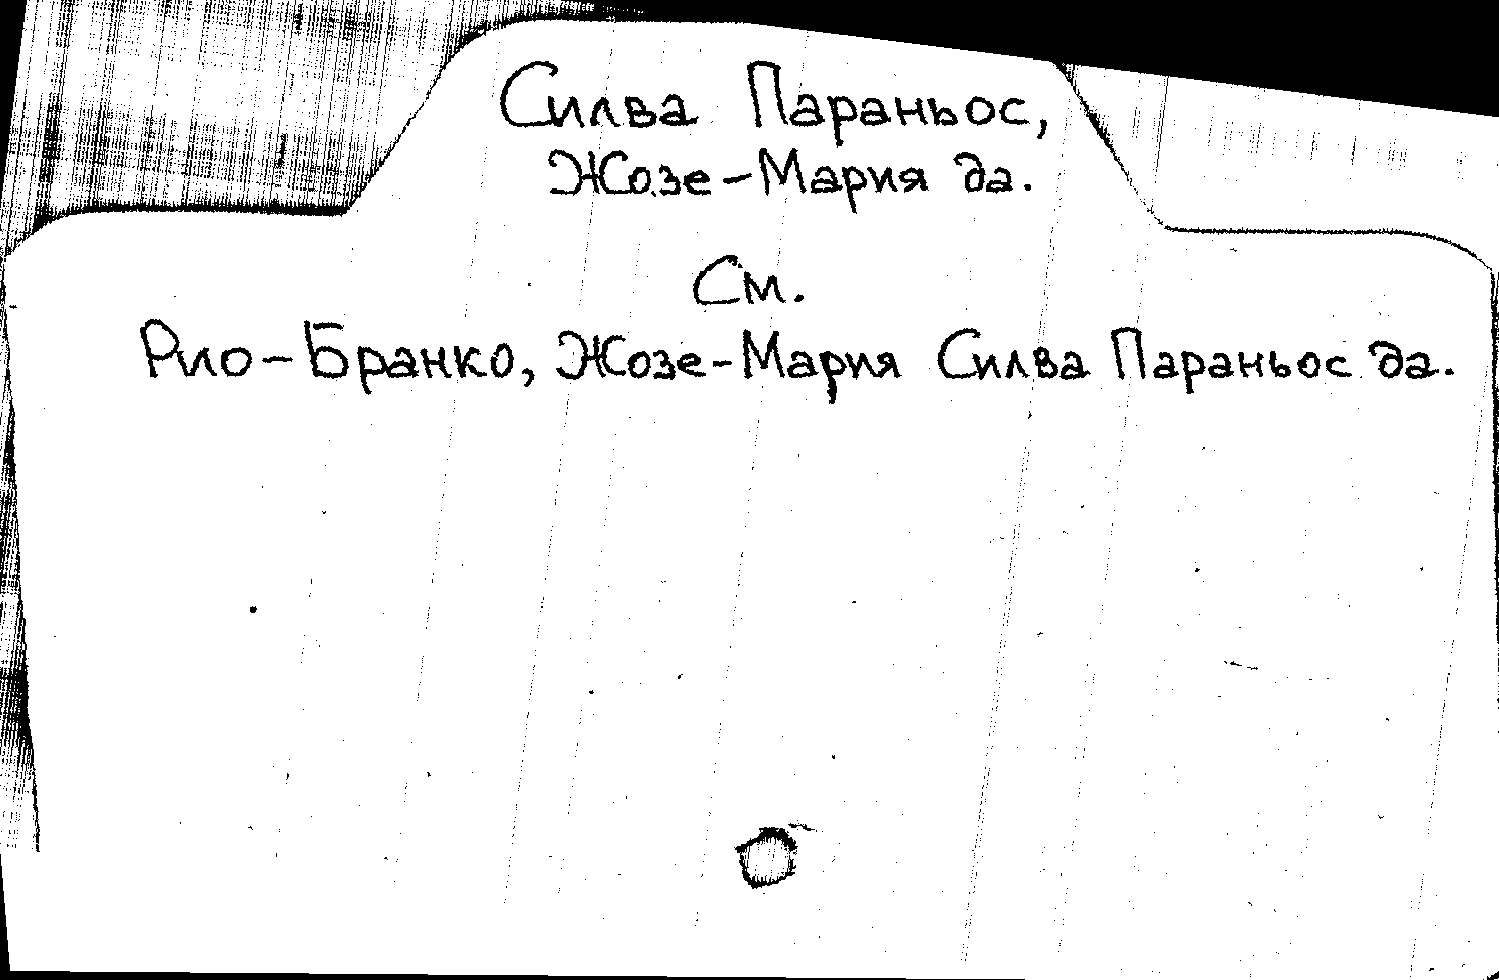 Силва Параньос,
Жозе-Мария да.
См.
Рио-Бранко, Жозе-Мария Силва Параньос да.